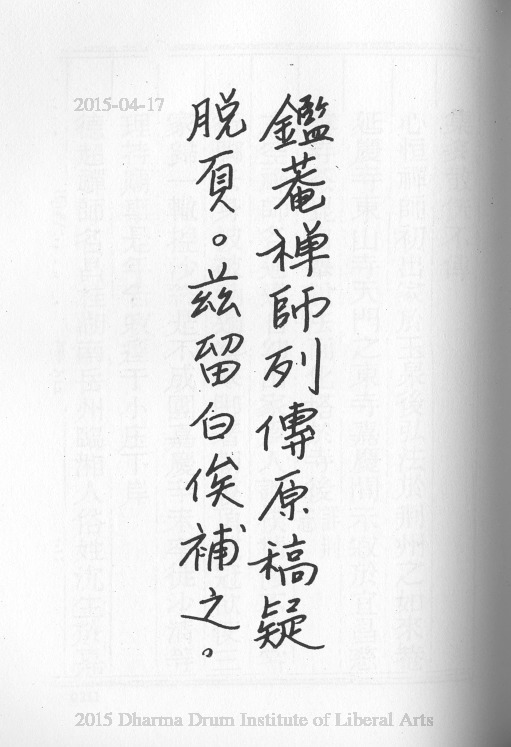 2015-04-17
鑑菴禅師列傳原稿疑
脱頁。茲留白俟補之。
2015 Dharma Drum Institute of Liberal Arts